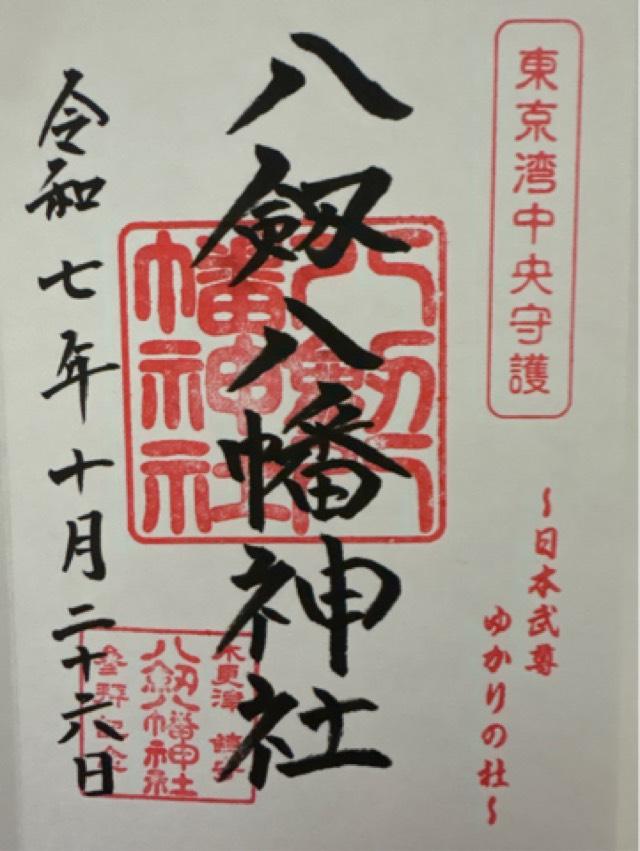 東京湾中央守護
～日本武尊
ゆかりの杜～
八剱八幡神社
八剱八
幡神社
木更津 鎮守
八剱八幡神社
参拝記念
令和七年十月二十六日